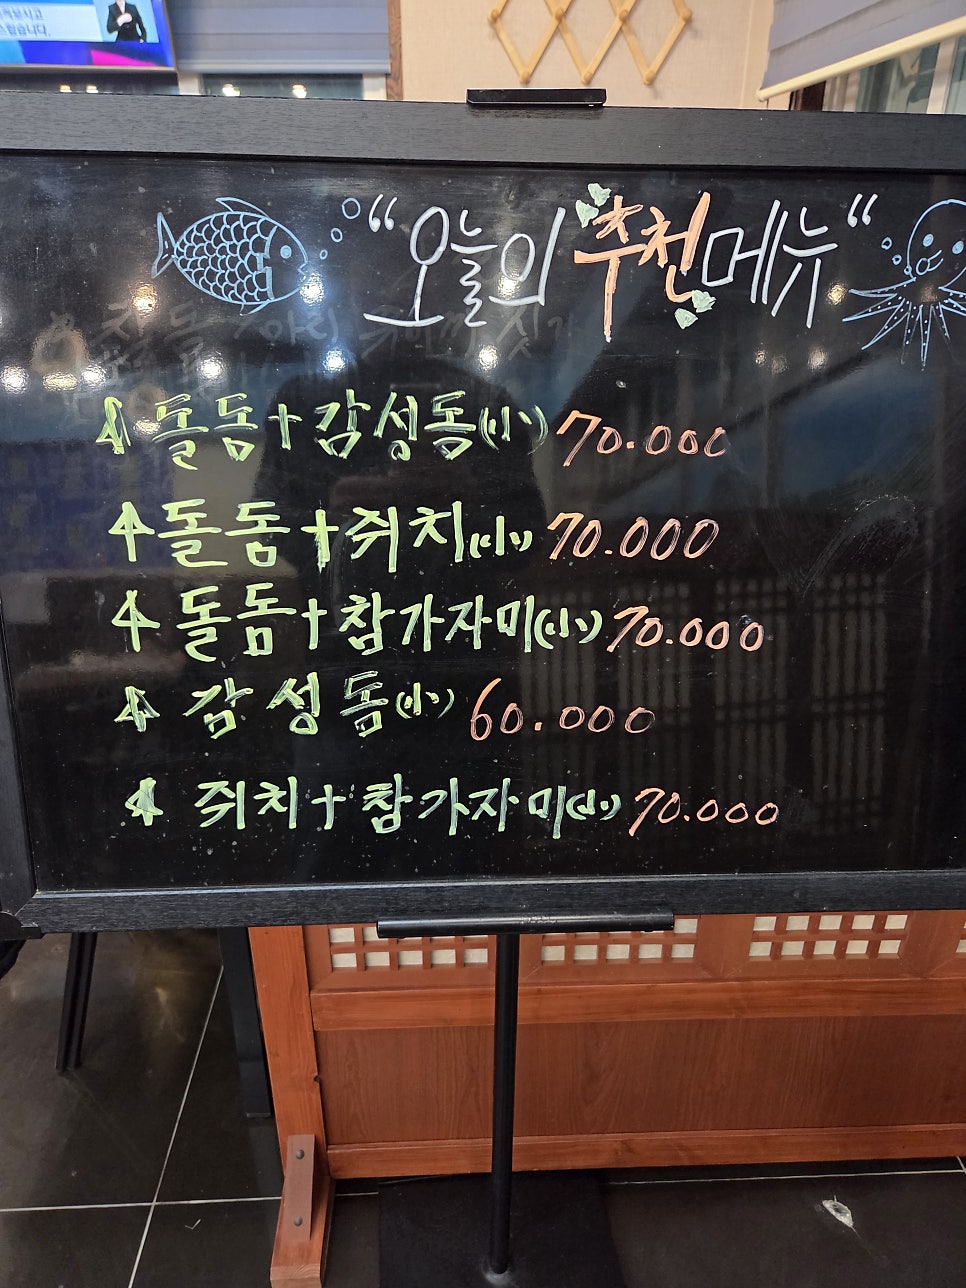 스럽습니다.
"오늘의 추천메뉴"
돌돔+감성돔(小) 70.000
돌돔+쥐치(小) 70.000
돌돔+참가자미(小) 70.000
감성돔(小) 60.000
쥐치+참가자미(小) 70.000